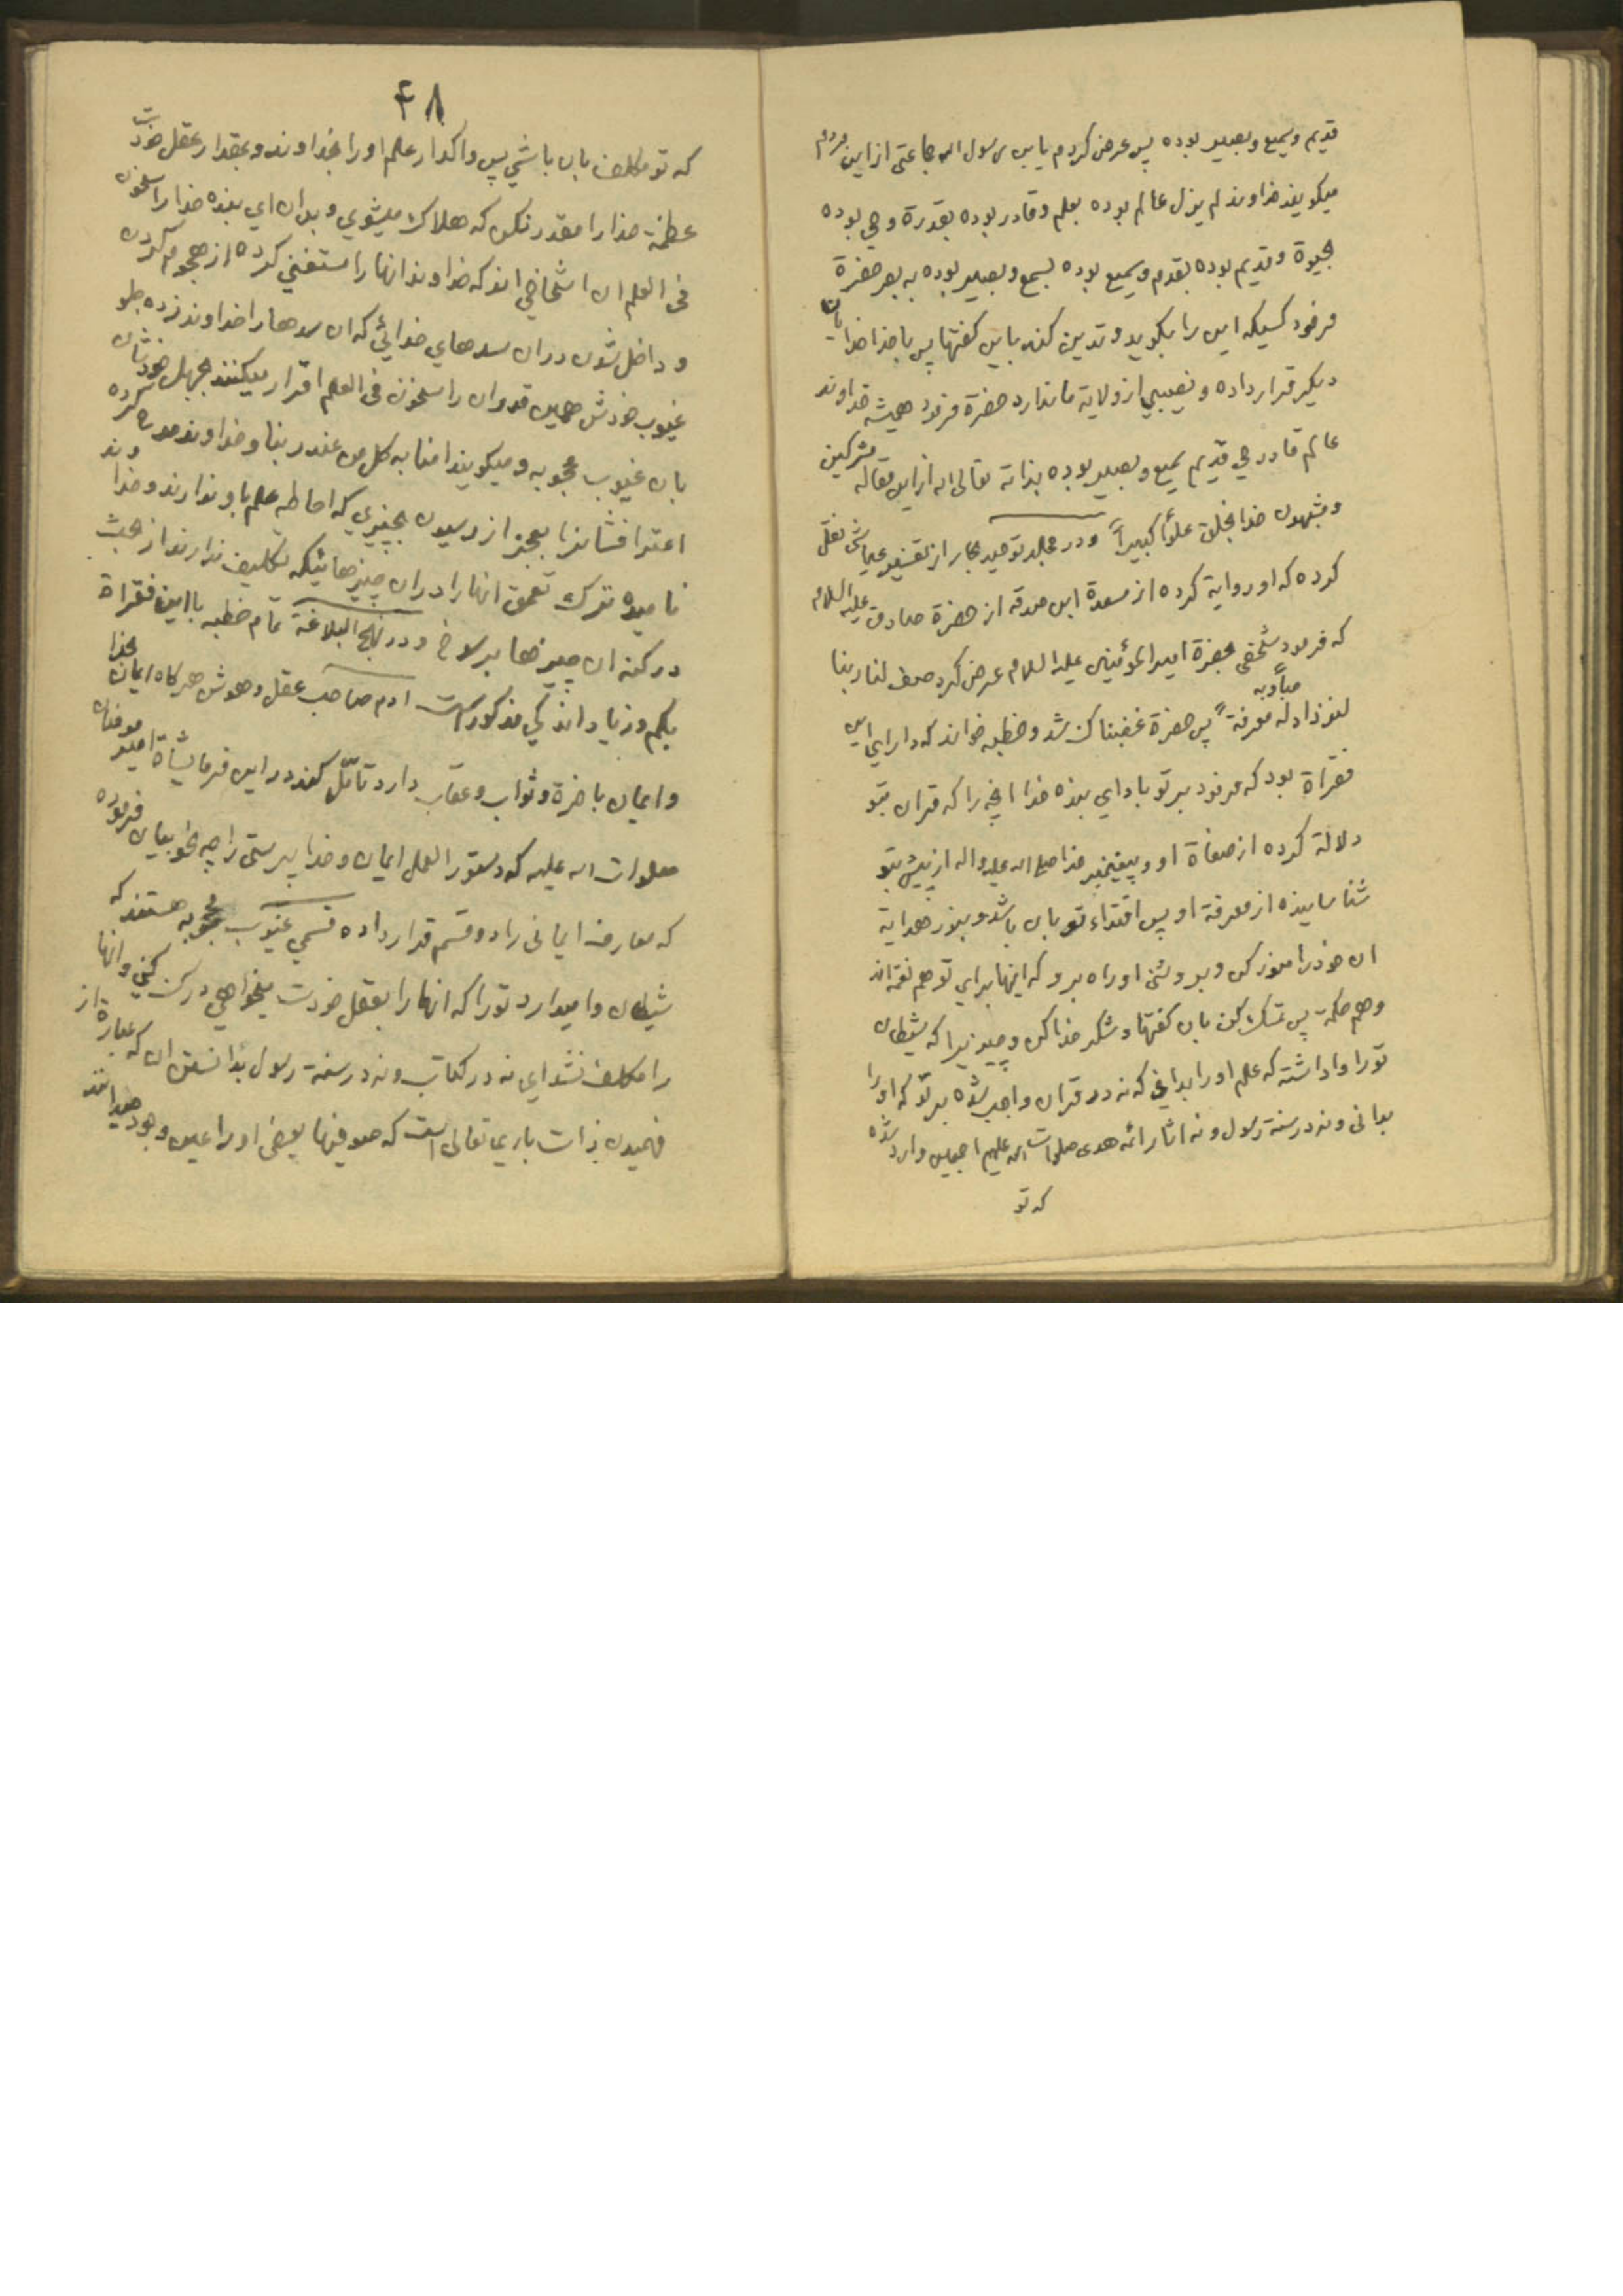 قدیم وسمیع وبصیر بوده پس عرض کردم یابن رسول الله جماعتی ازاین مردم
میکویند خداوند لم یزل عالم بوده بعلم وقادر بوده بقدرة وحی بوده
بحیوة وقدیم بوده بقدم وسمیع بوده بسمع وبصیر بوده به بصر حضرة
فرمود کسیکه این را بکوید وتدین کند باین کفتها پس باخدا خدایان
دیکر قرار داده ونصیبی از ولایة ما ندارد حضرة فرمود همیشه خداوند
عالم قادر حی قدیم سمیع وبصیر بوده بذاته تعالی الله ازاین مقاله مشرکین
ومشبهون خدا بخلق علوًا کبیراً ودر مجلد توحید بحار از تفسیر عیاشی نقل
کرده که او روایة کرده از مسعدة ابن صدقه از حضرة صادق علیه السلام
که فرمود شخصی بحضرة امیرالمؤمنین علیه السلام عرض کرد صف لنا ربنا
لنزداد له معرفة پس حضرة غضبناک شد وخطبه خواند که دارای این
فقراة بود که فرمود بر تو باد ای بنده خدا انچه را که قران بتو
دلالة کرده از صفاة او وپیغمبر خدا صلی الله علیه واله از پیش بتو
شناسانیده از معرفة او پس اقتداء تو بان باشد وبنور هدایة
ان خود را منور کن وبروشنی او راه برو که اینها برای تو هم نعمة اند
وهم حکمة پس تمسک کن بان کفتها وشکر خدا کن وچیزیرا که شیطان
تورا واداشته که علم اورا بدانی که نه در قران واجب شده بر تو که اورا
بدانی ونه در سنة رسول ونه اثار ائمه هدی صلوات الله علیهم اجمعین وارد شده
که تو
۴۸
که تو مکلف بان باشی پس واکذار علم اورا بخداوند وبمقدار عقل خودت
عظمة خدا را مقدر نکن که هلاک میشوی وبدان ای بنده خدا راسخون
فی العلم ان اشخاصی اند که خداوند انها را مستغنی کرده از هجوم کردن
وداخل شدن دران سدهای خدائی که ان سدها را خداوند زده جلو
غیوب خودش همین قدر ان راسخون فی العلم اقرار میکنند بجهل خودشان
بان غیوب محجوبه ومیکویند امنا به کل من عند ربنا وخداوند مدح کرده
اعترافشانرا بعجز از رسیدن بچیزی که احاطه علم باو ندارند وخداوند
نامیده ترک تعمق انها را دران چیزهائیکه تکلیف ندارند از بحث
در کنه ان چیزها برسوخ ودر نهج البلاغة تمام خطبه بااین فقراة
بکم وزیاد اندکی مذکور است ادم صاحب عقل وهوش هرکاه ایمان بخدا
وایمان باخرة وثواب وعقاب دارد تامّل کند دراین فرمایشاة امیر مومنان
صلوات الله علیه که دستور العمل ایمان وخدا پرستی را چه خوب بیان فرموده
که معارف ایمانی را دو قسم قرار داده قسمی غیوب محجوبه هستند که
شیطان وامیدارد تورا که انها را بعقل خودت میخواهی درک کنی وانها
را مکلف نشده ای نه در کتاب ونه در سنة رسول بدانستن ان که عبارة از
فهمیدن ذات باری تعالی است که صوفیها بعضی اورا عین وجود میدانند